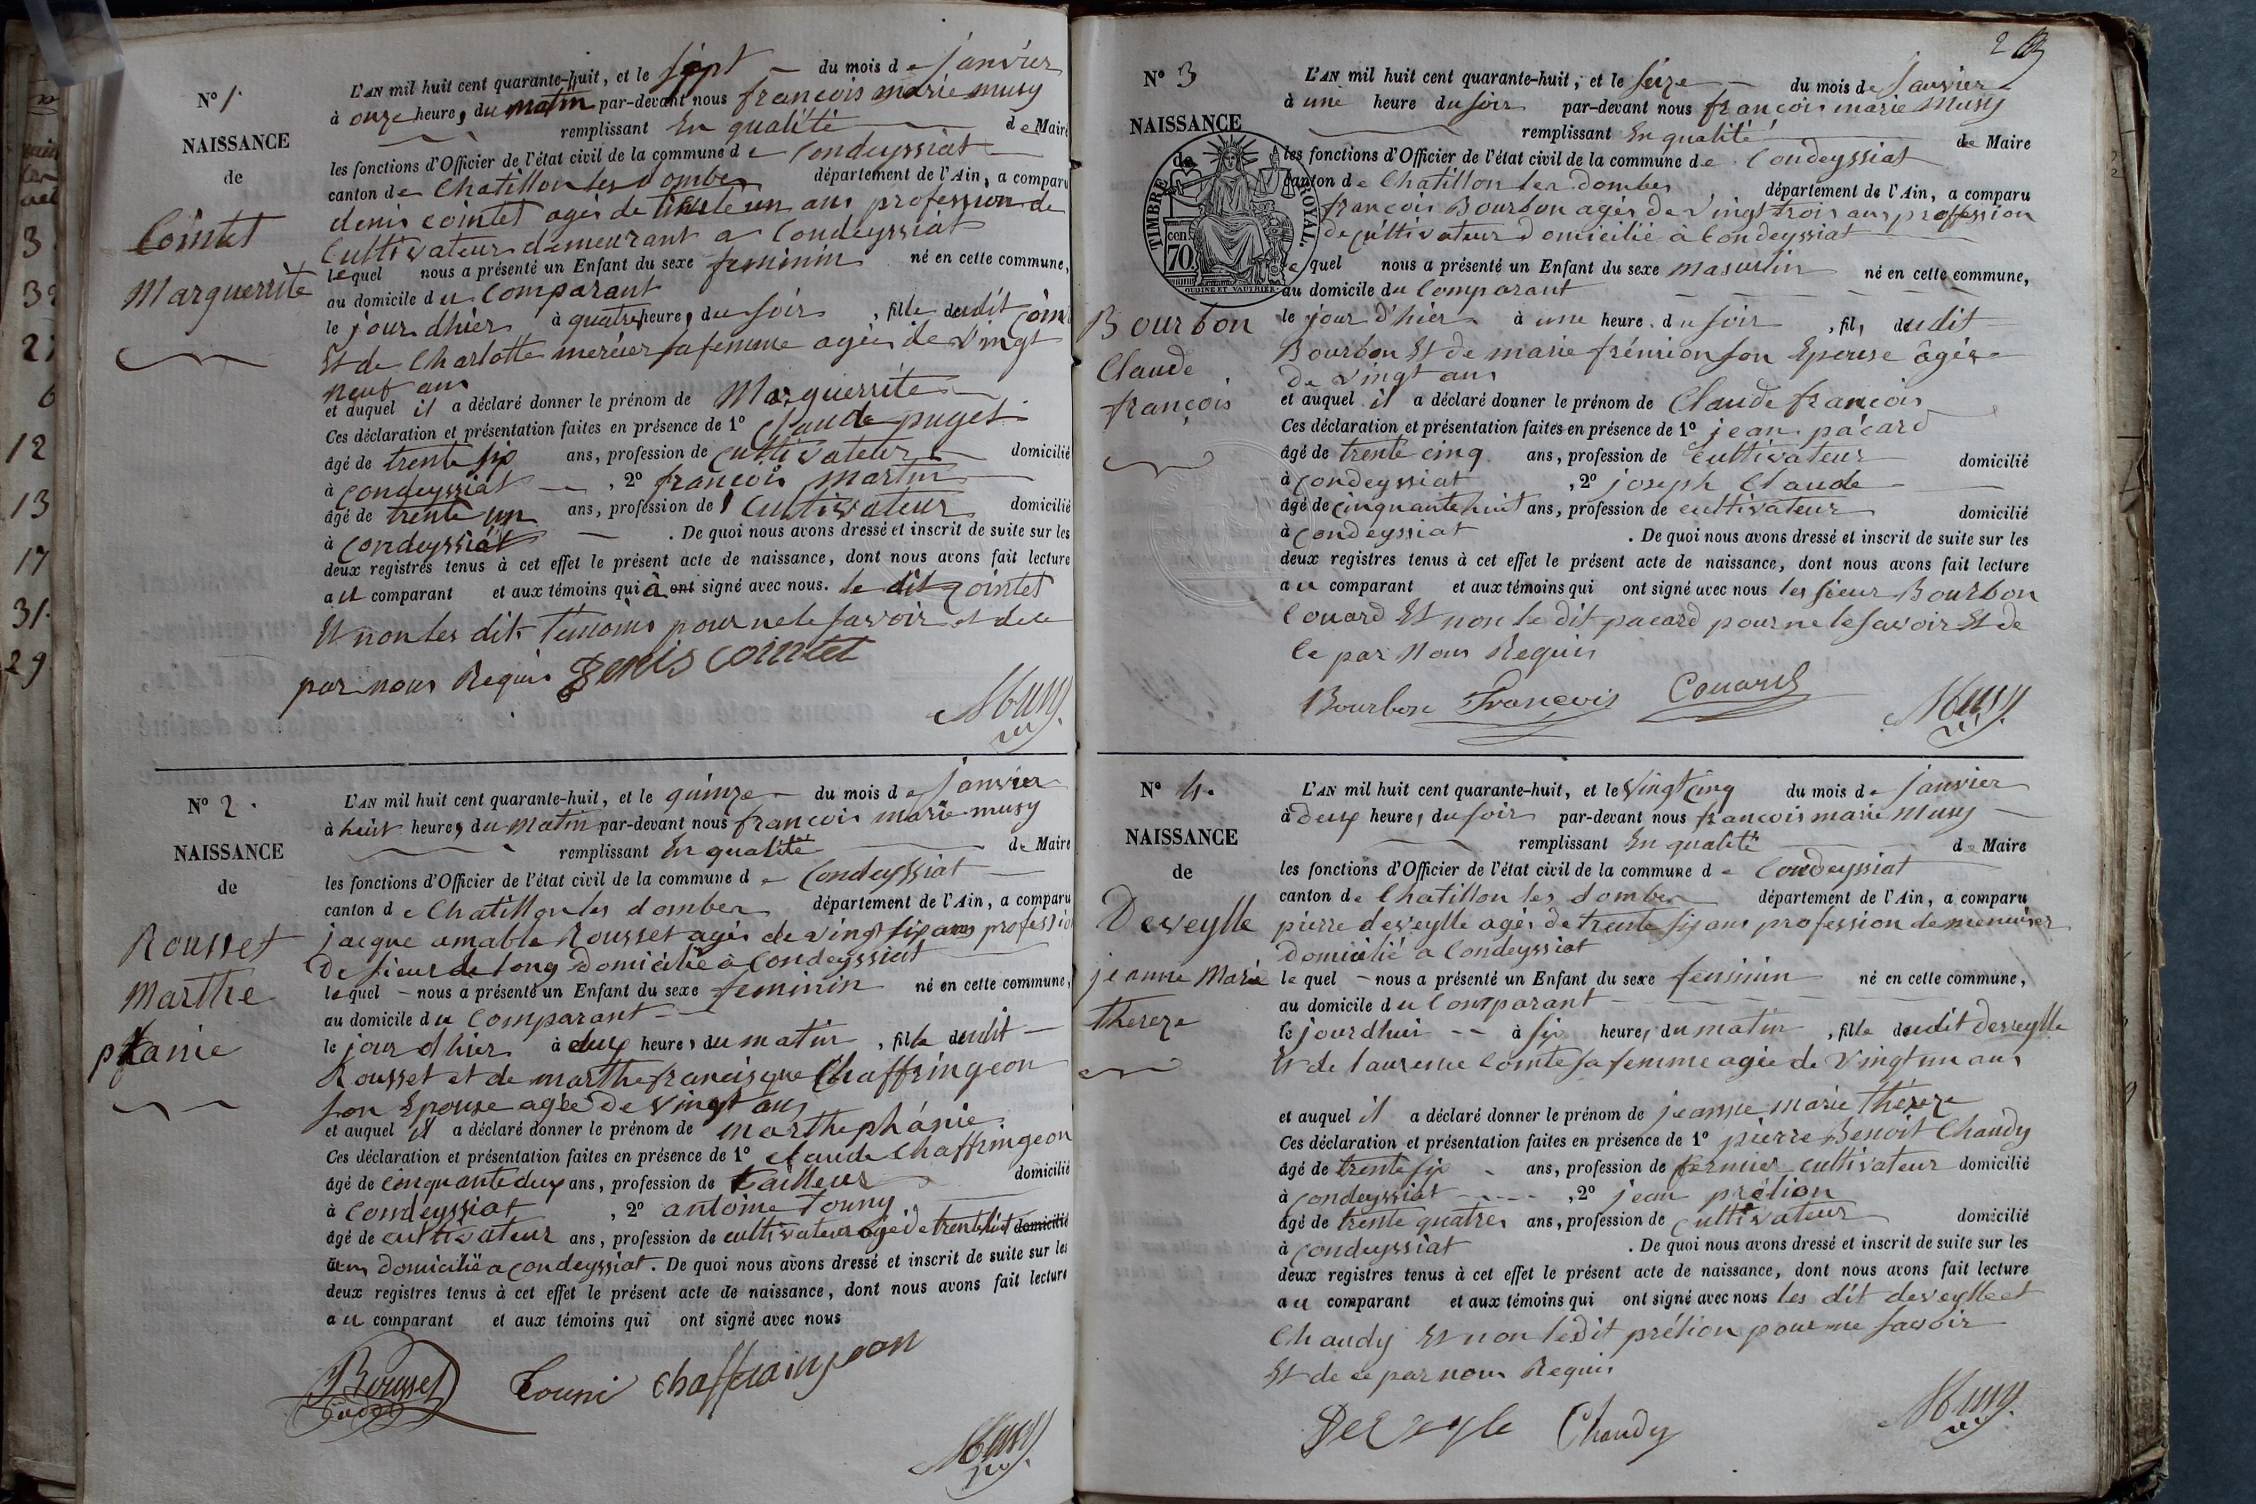 N° 1.
NAISSANCE
de
Cointet
Marguerrite
L'AN mil huit cent quarante-huit, et le sept du mois de janvier
à onze heures du matin par-devant nous françois marie musy
remplissant En qualité de Maire
les fonctions d'Officier de l'état civil de la commune de Condeyssiat
canton de Chatillon les dombes département de l'Ain, a comparu
denis cointet agés de trente un ans profession de
Cultivateur demeurant a Condeyssiat
lequel nous a présenté un Enfant du sexe feminin né en cette commune,
au domicile du Comparant
le jour dhier à quatre heures du soir, fille dudit Coint
Et de Charlotte mercier sa femme agée de Vingt
neuf ans
et auquel il a déclaré donner le prénom de Marguerrite
Ces déclaration et présentation faites en présence de 1° Claude puget
âgé de trente six ans, profession de cultivateur domicilié
à Condeyssiat, 2° françois martin
âgé de trente un ans, profession de Cultivateur domicilié
à Condeyssiat. De quoi nous avons dressé et inscrit de suite sur les
deux registres tenus à cet effet le présent acte de naissance, dont nous avons fait lecture
au comparant et aux témoins qui à ont signé avec nous. le dit Cointet
Et non les dits Temoins pour ne le savoir et de ce
par nous Requis Denis cointet
Musy
N° 2.
NAISSANCE
de
Rousset
Marthe
phanie
L'AN mil huit cent quarante-huit, et le quinze du mois de janvier
à huit heures du Matin par-devant nous françois marie musy
remplissant En qualité de Maire
les fonctions d'Officier de l'état civil de la commune de Condeyssiat
canton de Chatillon les dombes département de l'Ain, a comparu
jacque amable Rousset agés de vingt six ans professio
De sieur de long Domicilié à Condeyssiat
lequel nous a présenté un Enfant du sexe feminin né en cette commune,
au domicile du Comparant
le jour d'hier à deux heures du matin, fille dudit
Rousset et de marthe francisque Chaffringeon
son Epouse agée De vingt ans
et auquel il a déclaré donner le prénom de marthe phanie
Ces déclaration et présentation faites en présence de 1° claude Chaffringeon
âgé de cinquante deux ans, profession de tailleur domicilié
à Condeyssiat, 2° antoine Touny
âgé de cultivateur ans, profession de cultivateur agé de trente huit domicilié
ans Domicilié a Condeyssiat. De quoi nous avons dressé et inscrit de suite sur les
deux registres tenus à cet effet le présent acte de naissance, dont nous avons fait lecture
au comparant et aux témoins qui ont signé avec nous
Rousset Touni chaffraingeon
Musy
2
N° 3
NAISSANCE
de
TIMBRE ROYAL.
cen. 70.
OUDINE ET VAUTHIER
Bourbon
Claude
françois
L'AN mil huit cent quarante-huit, et le seize du mois de Janvier
à une heure du soir par-devant nous françois marie Musy
remplissant En qualité de Maire
les fonctions d'Officier de l'état civil de la commune de Condeyssiat
canton de Chatillon les dombes département de l'Ain, a comparu
françois Bourbon agés de Vingt trois ans profession
de cultivateur Domicilié à Condeyssiat
le quel nous a présenté un Enfant du sexe masculin né en cette commune,
au domicile du Comparant
le jour d'hier à une heure du soir, fils dudit
Bourbon Et de marie frémion son Epouse âgée
De Vingt ans
et auquel il a déclaré donner le prénom de Claude françois
Ces déclaration et présentation faites en présence de 1° jean pacard
âgé de trente cinq ans, profession de cultivateur domicilié
à Condeyssiat, 2° joseph Claude
âgé de cinquante huit ans, profession de cultivateur domicilié
à Condeyssiat. De quoi nous avons dressé et inscrit de suite sur les
deux registres tenus à cet effet le présent acte de naissance, dont nous avons fait lecture
au comparant et aux témoins qui ont signé avec nous les sieur Bourbon
Couard Et non le dit pacard pour ne le savoir Et de
Ce par Nous Requis
Bourbon François Couard
Musy
N° 4.
NAISSANCE
de
Deveylle
jeanne Marie
thereze
L'AN mil huit cent quarante-huit, et le Vingt Cinq du mois de janvier
à deux heures du soir par-devant nous françois marie Musy
remplissant En qualité de Maire
les fonctions d'Officier de l'état civil de la commune de Condeyssiat
canton de Chatillon les dombes département de l'Ain, a comparu
pierre deveylle agés de trente six ans profession de menuisier
Domicilié a Condeyssiat
le quel nous a présenté un Enfant du sexe feminin né en cette commune,
au domicile du Comparant
le jourdhui à six heures du matin, fille dudit deveylle
Et de laurence Comte sa femme agée de Vingt un ans
et auquel il a déclaré donner le prénom de jeanne marie Théreze
Ces déclaration et présentation faites en présence de 1° pierre Benoit Chaudy
âgé de trente six ans, profession de fermier cultivateur domicilié
à Condeyssiat, 2° jean prélion
âgé de trente quatre ans, profession de cultivateur domicilié
à Condeyssiat. De quoi nous avons dressé et inscrit de suite sur les
deux registres tenus à cet effet le présent acte de naissance, dont nous avons fait lecture
au comparant et aux témoins qui ont signé avec nous les dit deveylle et
Chaudy Et non ledit prélion pour ne savoir
Et de ce par nous Requis
Deveyle Chaudy
Musy
3
3
2
6
12
13
17
31.
29